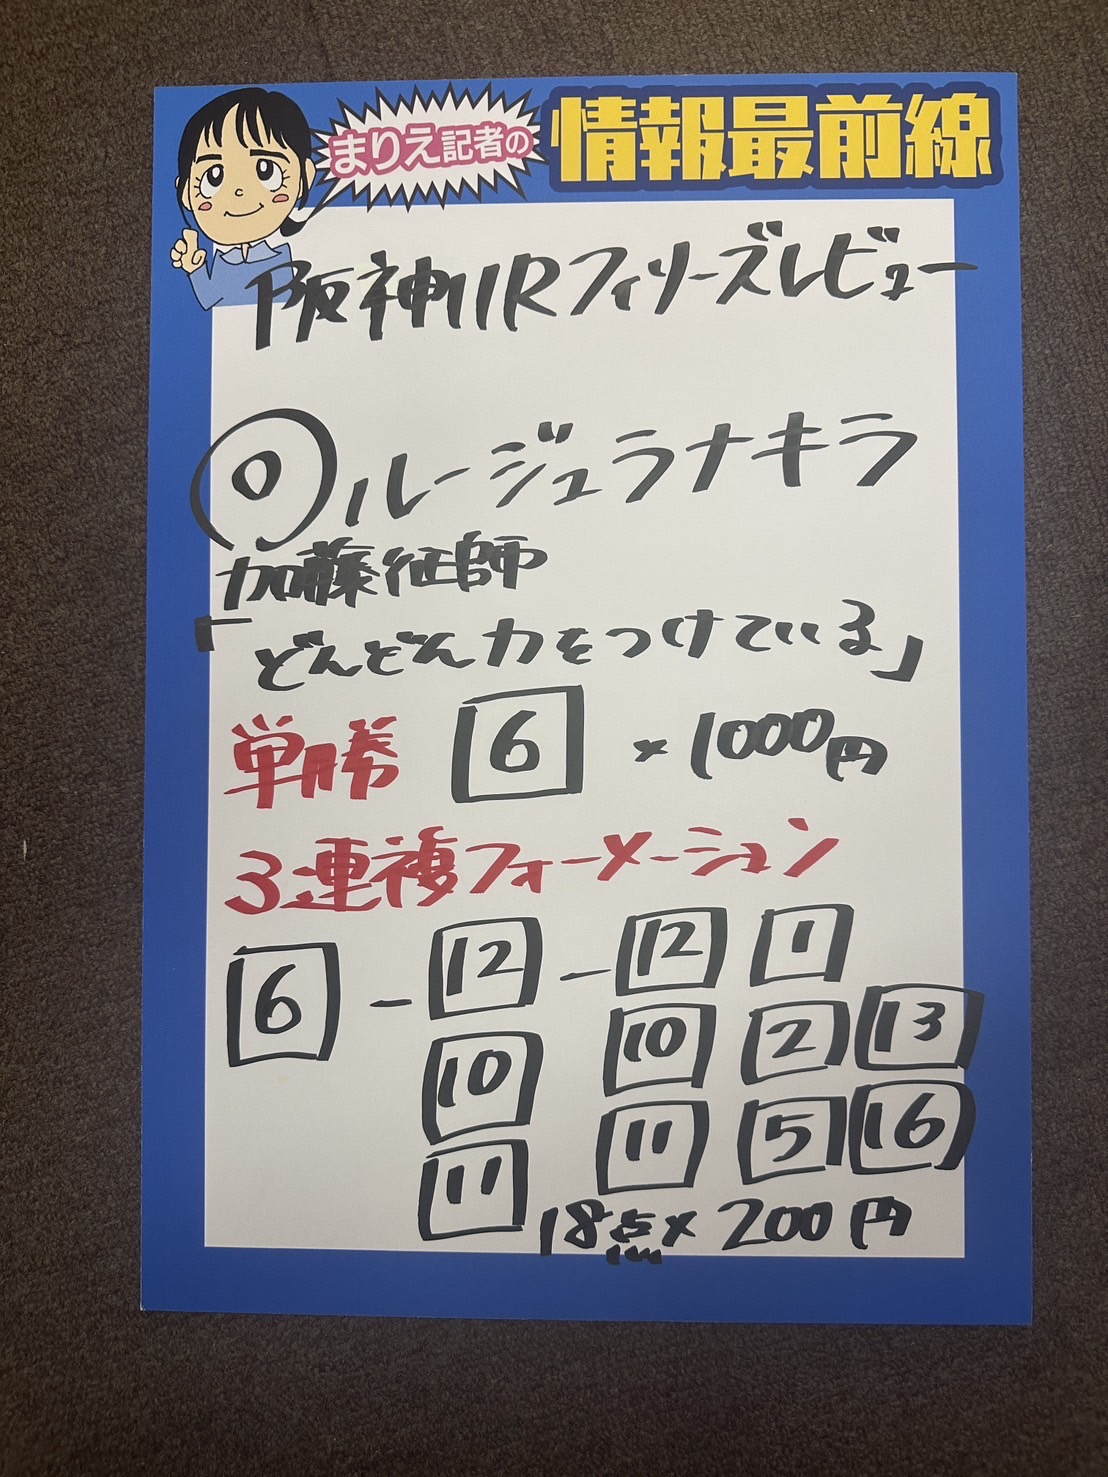 まりえ記者の 情報最前線
阪神11Rフィリーズレビュー
◎ルージュラナキラ
加藤征師
「どんどん力をつけている」
単勝 6 × 1000円
3連複フォーメーション
6 - 12 - 12 1
10 10 2 13
11 11 5 16
18点× 200円